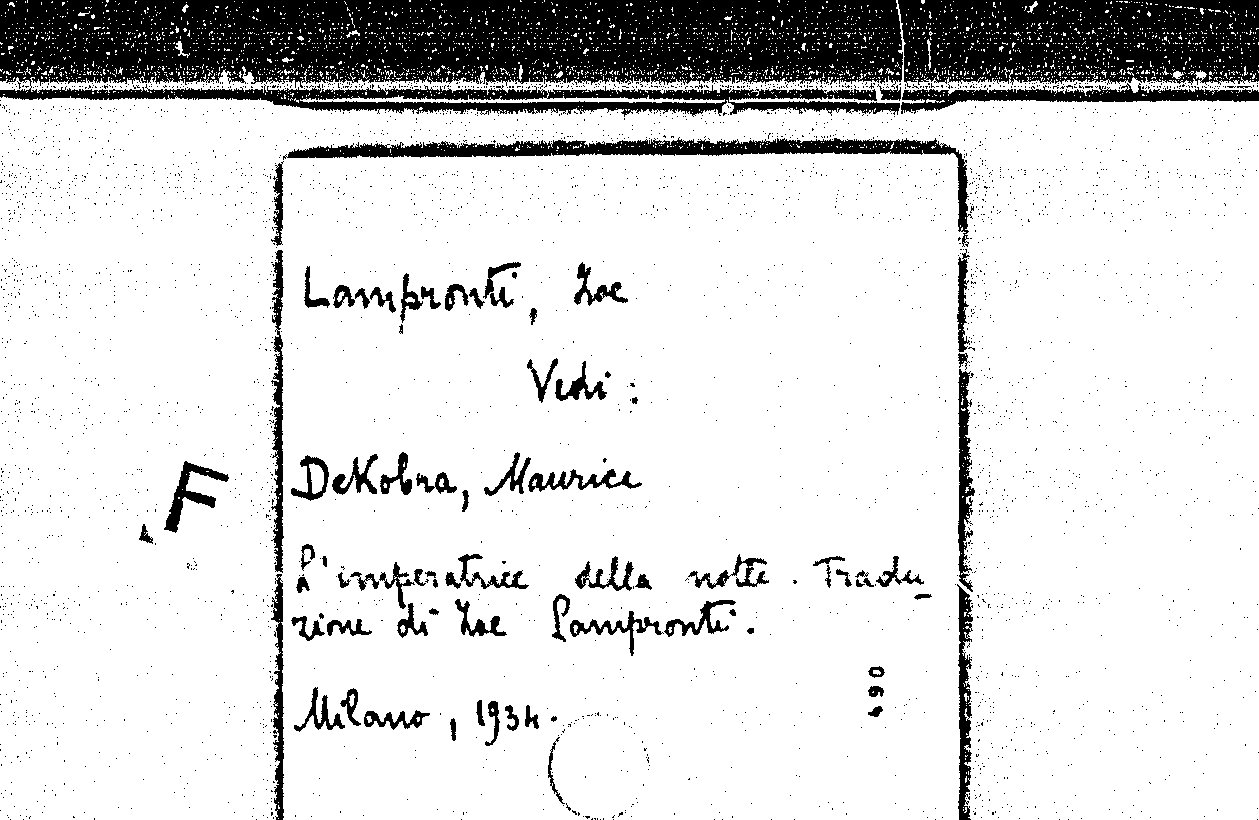 Lampronti, Zoe
Vedi:
DeKobra, Maurice
F
L'imperatrice della notte. Tradu_
zione di Zoe Lampronti.
Milano, 1934.
490